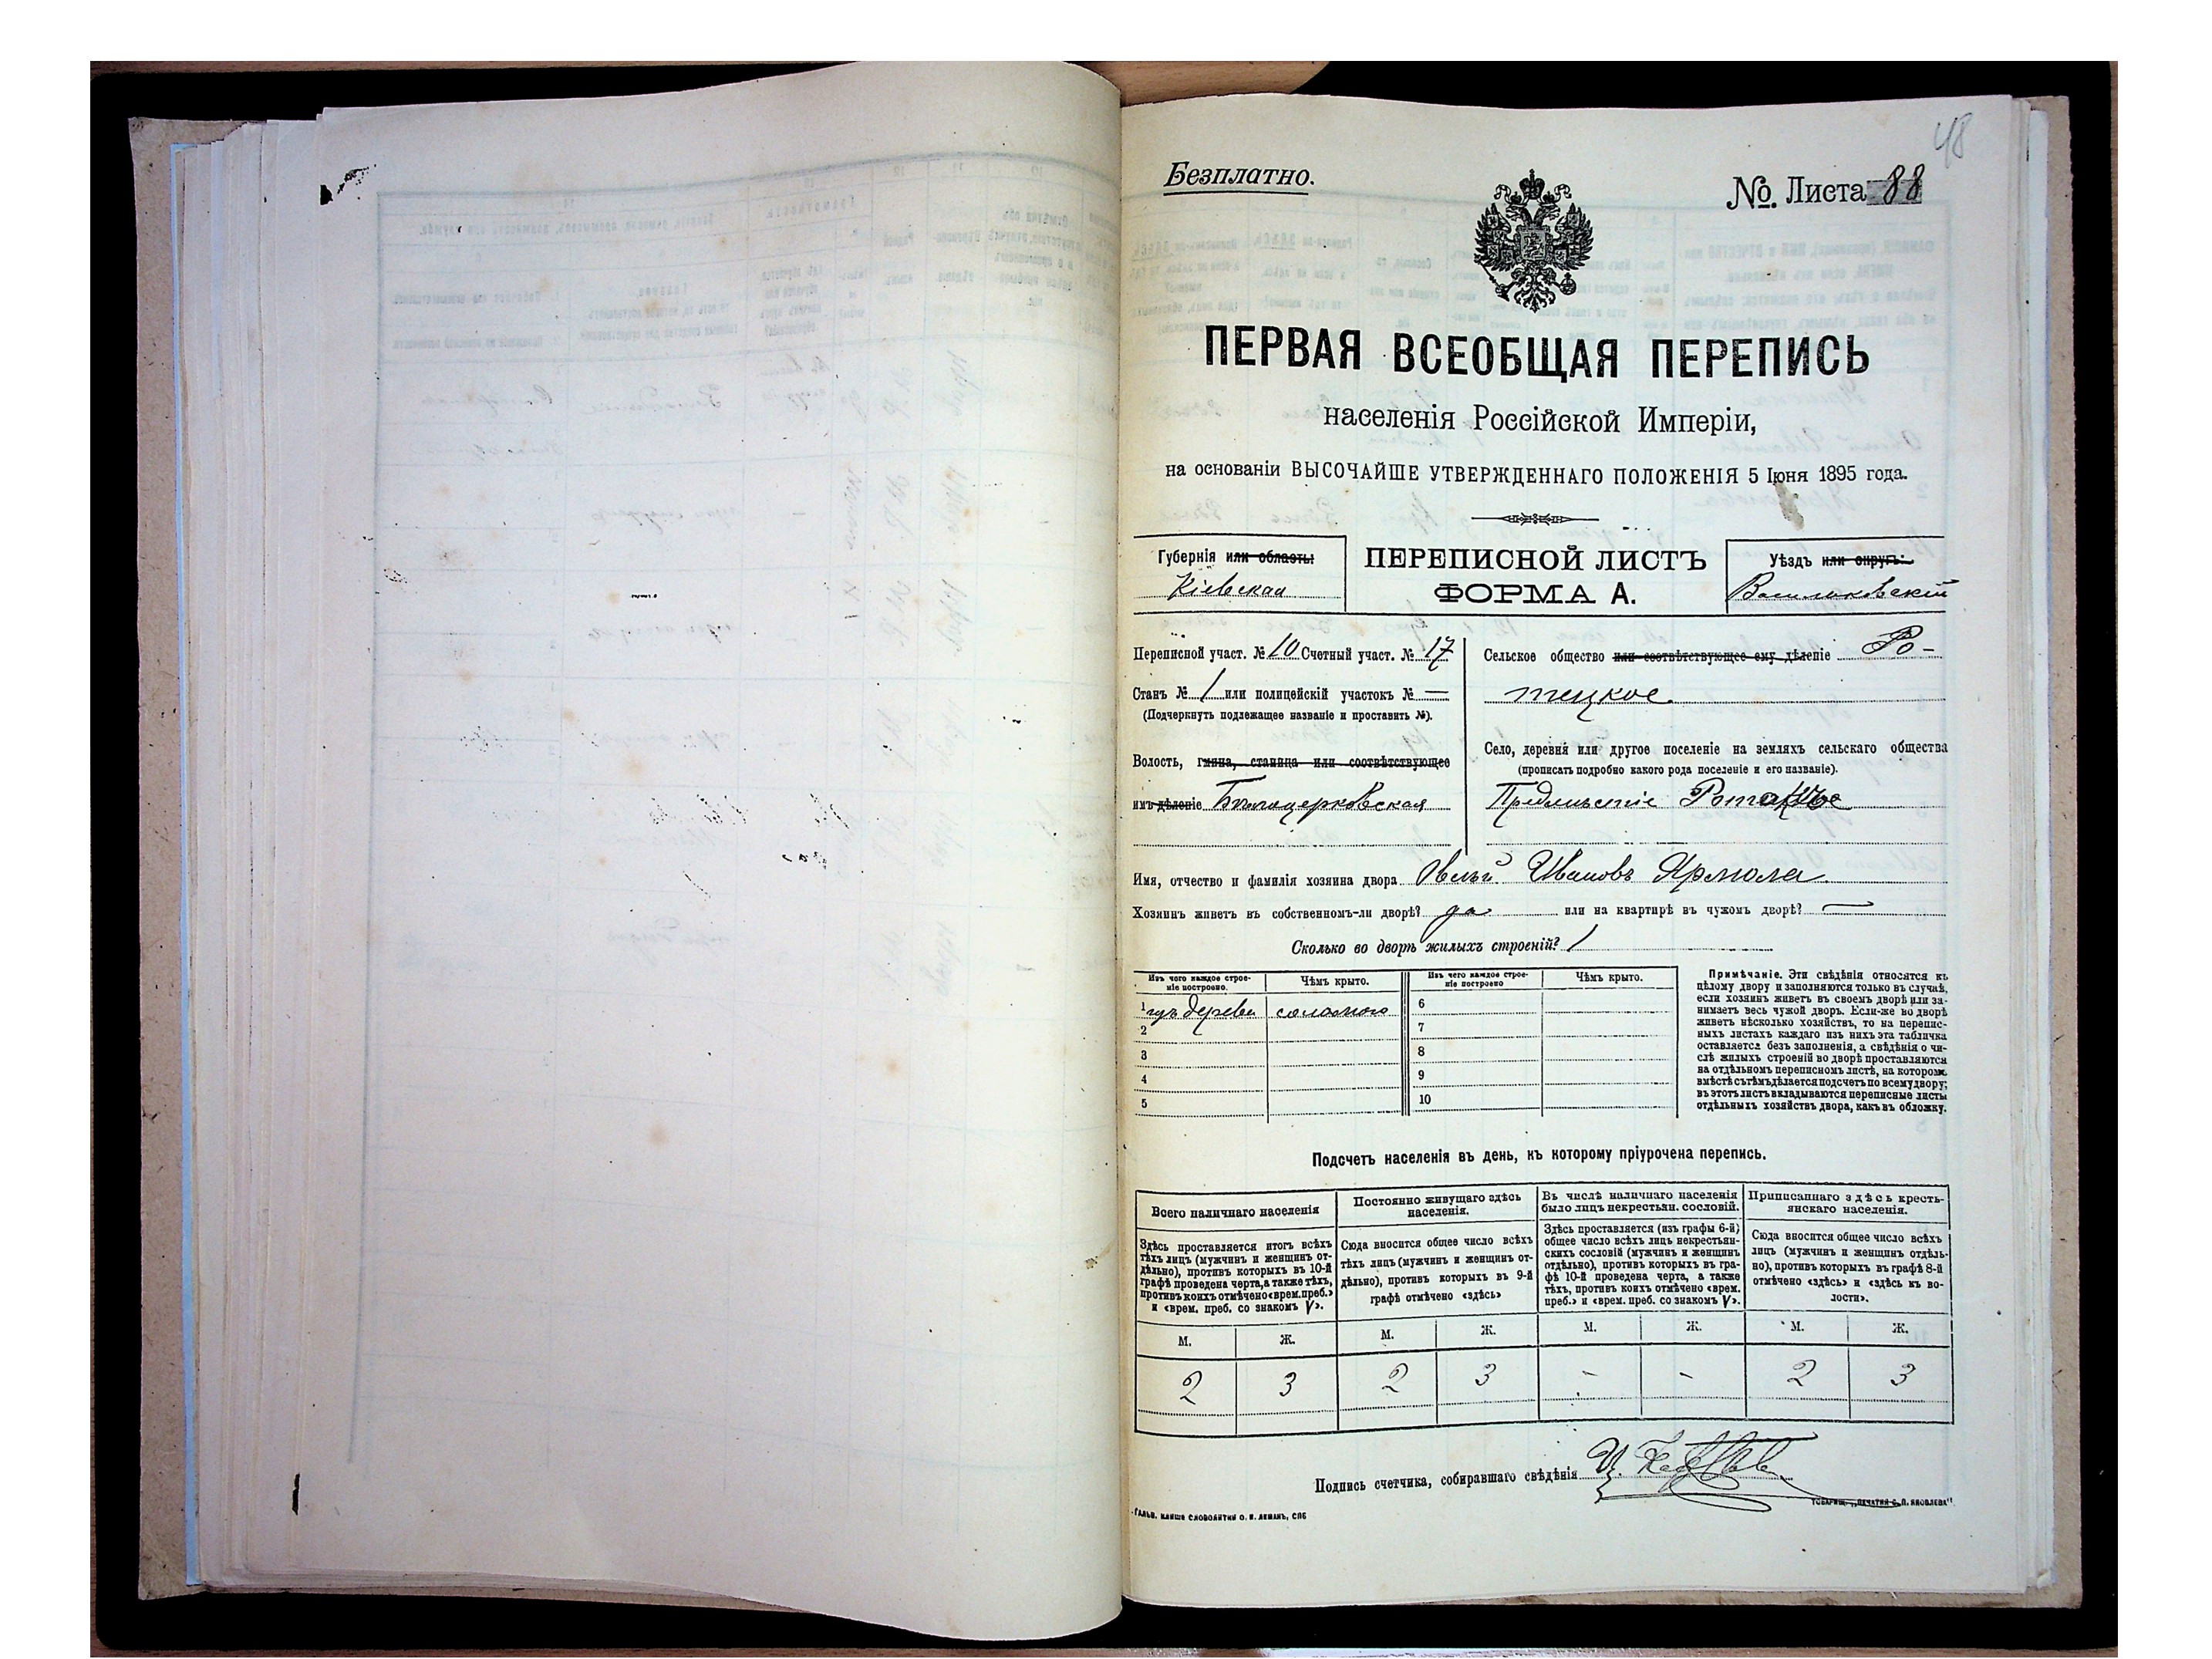 48
Безплатно.
№. Листа 88
ПЕРВАЯ ВСЕОБЩАЯ ПЕРЕПИСЬ
населенія Россійской Имперіи,
на основаніи ВЫСОЧАЙШЕ УТВЕРЖДЕННАГО ПОЛОЖЕНІЯ 5 Іюня 1895 года.
Губернія или область:
Кіевская
ПЕРЕПИСНОЙ ЛИСТЪ
ФОРМА А.
Уѣздъ или округъ:
Васильковскій
Переписной участ. № 10 Счетный участ. № 17
Станъ № 1 или полицейскій участокъ № —
(Подчеркнуть подлежащее названіе и проставить №).
Волость, гмина, станица или соотвѣтствующее
имъ дѣленіе Бѣлоцерковская
Сельское общество или соотвѣтствующее ему дѣленіе Ро-
тецкое
Село, деревня или другое поселеніе на земляхъ сельскаго общества
(прописать подробно какого рода поселеніе и его названіе).
Предмѣстіе
Имя, отчество и фамилія хозяина двора Ивановъ Ярмола
Хозяинъ живетъ въ собственномъ-ли дворѣ? да или на квартирѣ въ чужомъ дворѣ? —
Сколько во дворѣ жилыхъ строеній? 1
Изъ чего каждое строе-
ніе построено.
Чѣмъ крыто.
Изъ чего каждое строе-
ніе построено
Чѣмъ крыто.
1 изъ дерева соломою
2
3
4
5
6
7
8
9
10
Примѣчаніе. Эти свѣдѣнія относятся къ
цѣлому двору и заполняются только въ случаѣ,
если хозяинъ живетъ въ своемъ дворѣ или за-
нимаетъ весь чужой дворъ. Если-же во дворѣ
живетъ нѣсколько хозяйствъ, то на перепис-
ныхъ листахъ каждаго изъ нихъ эта табличка
оставляется безъ заполненія, а свѣдѣнія о чи-
слѣ жилыхъ строеній во дворѣ проставляются
на отдѣльномъ переписномъ листѣ, на которомъ
вмѣстѣ съ тѣмъ дѣлается подсчетъ по всему двору;
въ этотъ листъ вкладываются переписные листы
отдѣльныхъ хозяйствъ двора, какъ въ обложку.
Подсчетъ населенія въ день, къ которому пріурочена перепись.
Всего наличнаго населенія
Здѣсь проставляется итогъ всѣхъ
тѣхъ лицъ (мужчинъ и женщинъ от-
дѣльно), противъ которыхъ въ 10-й
графѣ проведена черта, а также тѣхъ,
противъ коихъ отмѣчено «врем. преб.»
и «врем. преб. со знакомъ V».
Постоянно живущаго здѣсь
населенія.
Сюда вносится общее число всѣхъ
тѣхъ лицъ (мужчинъ и женщинъ от-
дѣльно), противъ которыхъ въ 9-й
графѣ отмѣчено «здѣсь»
Въ числѣ наличнаго населенія
было лицъ некрестьян. сословій.
Здѣсь проставляется (изъ графы 6-й)
общее число всѣхъ лицъ некрестьян-
скихъ сословій (мужчинъ и женщинъ
отдѣльно), противъ которыхъ въ гра-
фѣ 10-й проведена черта, а также
тѣхъ, противъ коихъ отмѣчено «врем.
преб.» и «врем. преб. со знакомъ V».
Приписаннаго здѣсь кресть-
янскаго населенія.
Сюда вносится общее число всѣхъ
лицъ (мужчинъ и женщинъ отдѣль-
но), противъ которыхъ въ графѣ 8-й
отмѣчено «здѣсь» и «здѣсь къ во-
лости».
М. Ж. М. Ж. М. Ж. М. Ж.
2 3 2 3 - - 2 3
Подпись счетчика, собиравшаго свѣдѣнія
ГАЛЬВ. КЛИШЕ СЛОВОЛИТНИ О. И. ЛЕМАНЪ, СПБ
ТОВАРИЩ. „ПЕЧАТНЯ С. П. ЯКОВЛЕВА"